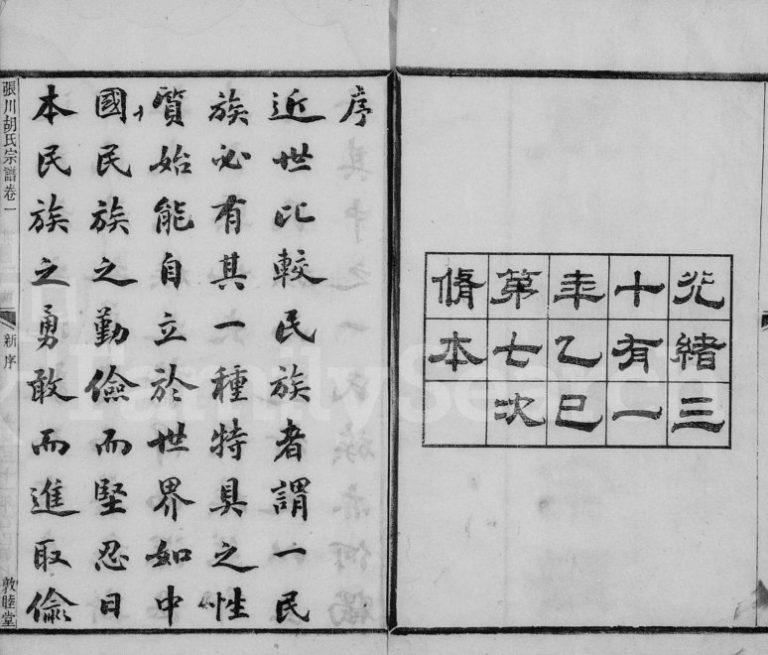 光緒三
十有一
年乙巳
第七次
脩本
序
近世比較民族者謂一民
族必有其一種特具之性
質始能自立於世界如中
國民族之勤儉而堅忍日
本民族之勇敢而進取儉
張川胡氏宗譜卷一
新序
敦睦堂
FamilySearch